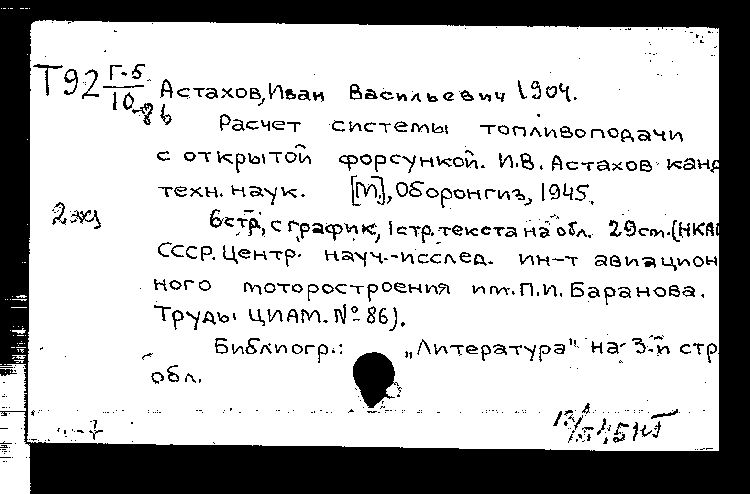 Т92 Г-5
10-86
Астахов, Иван Васильевич 1904.
Расчет системы топливоподачи
с открытой форсункой. И.В. Астахов канд
техн. наук. [М], Оборонгиз, 1945.
2 экз
6 стр, с график, 1 стр. текста на обл. 29 см. (НКАП
СССР. Центр. науч.-исслед. ин-т авиацион
ного моторостроения им. П.И. Баранова.
Труды ЦИАМ. № 86).
Библиогр.: „Литература" на 3-й стр
обл.